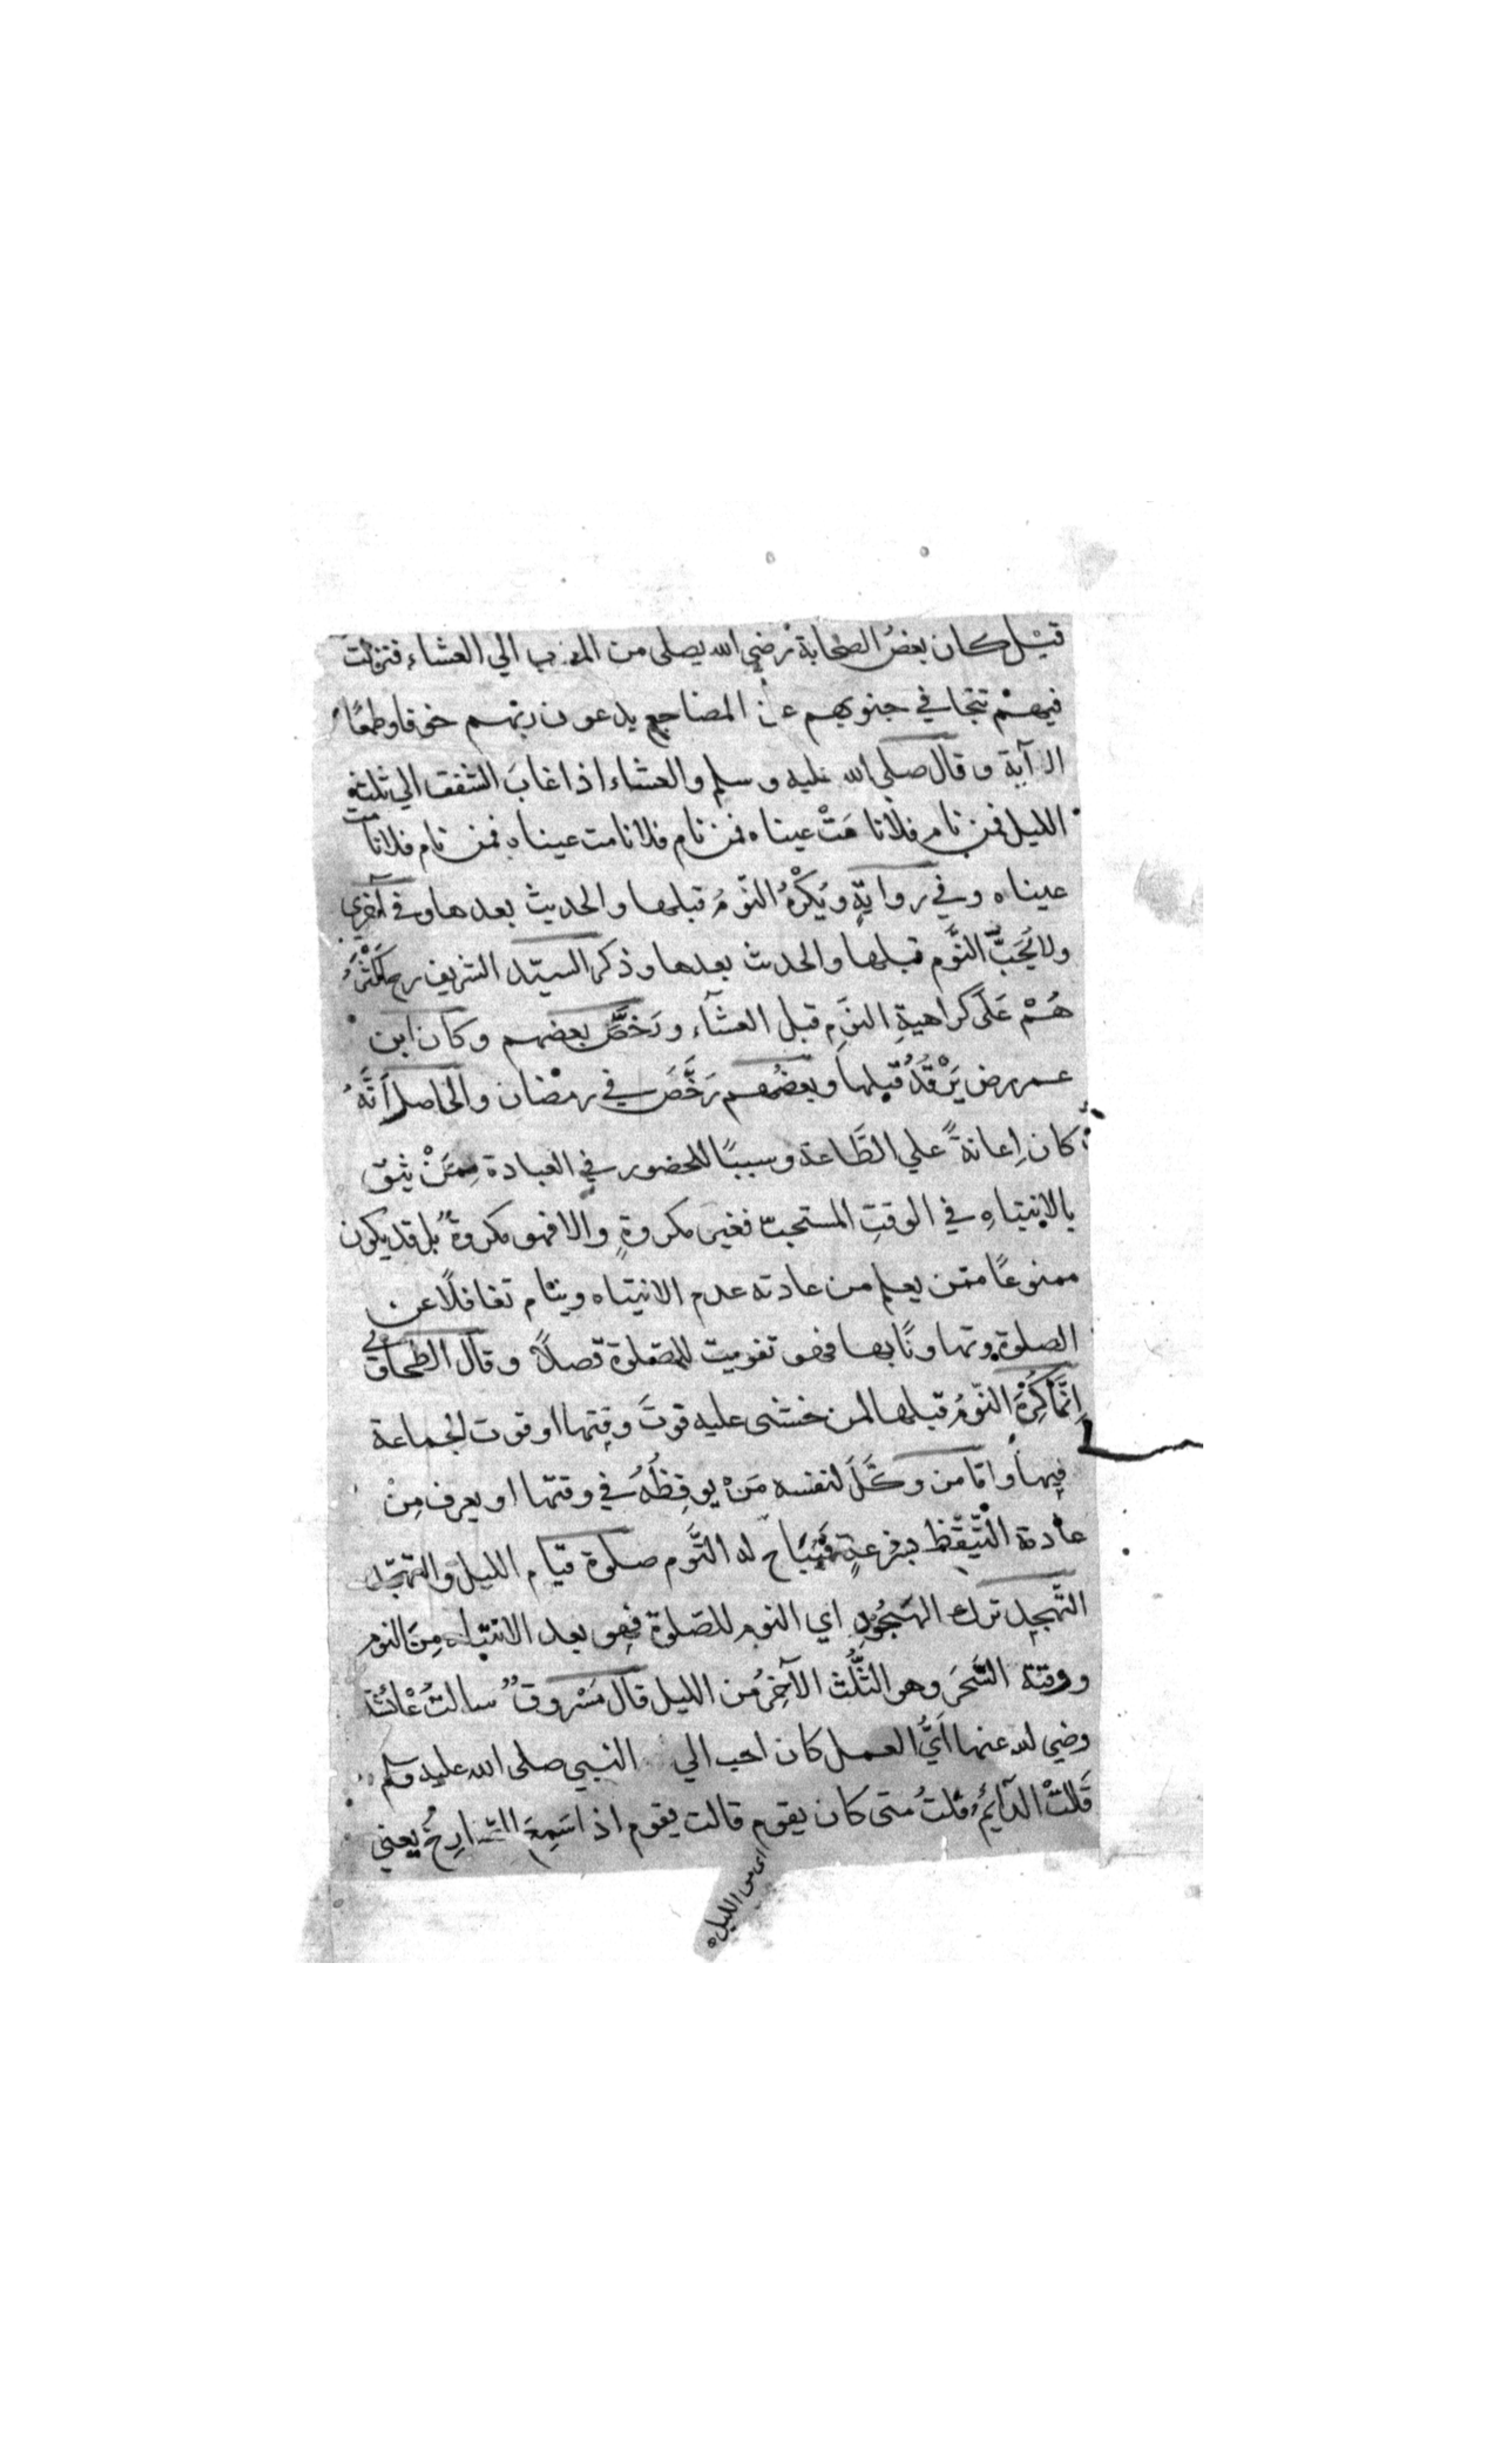 قيل كان بعضُ الصّحابة رضي الله يصلى من المغرب الي العشاء فنزلت
فيهمْ تتجافي جنوبهم عن المضاجع يدعون ربّهم خوفا وطمعًا
الآية وقال صلي الله عليه وسلم والعشاء اذا غابَ الشفق الي ثلث
الليل فمن نام فلانا مَتْ عيناه فمن نام فلانا مت عيناه فمن نام فلانا مت
عيناه وفي روايةٍ ويُكْرَهُ النّومُ قبلها والحديث بعدها وفي أخري
ولا يُحَبّ النَّوم قبلها والحدث بعدها وذكر السيّد الشريف رح اكثرُ
هُمْ عَلَى كراهيةِ النوَمِ قبل العشآء ورَخَّصَ بعضهم وكان ابن
عمر رض يَرْقُدُ قبلها وبعضُهم رَخَّصَ في رمضان والحاصل اَنَّهُ
كان إعانةً علي الطَّاعة وسببًا للحضور في العبادة مِمَنْ يثق
بالإنتباهِ في الوقتِ المستحبّ فغير مكروةٍ والا فهو مكروةٌ بل قد يكون
ممنوعًا ممّن يعلم من عادته عدم الانتباه وينام تغافلًا عن
الصلوة وتهاونًا بها فهو تفويت للصّلوة قصلاً وقال الطحاوي
إنَّمَا كُرِهَ النّومُ قبلها لمن خشى عليه فوتَ وقتها او فوت الجماعة
فيها وامّا من وكَّلَ لنفسه مَنْ يوقِظُهُ في وقتها او يعرف مِنْ
عادة التّيَقّظ بفزعةٍ فيُبَاح له النَّوم صلوة قيام الليل والتهجّد
التّهجد ترك الهُجُودِ اي النوم للصّلوة فهو بعد الانتباه مِنَ النوم
ووقتة السَّحَر وهو الثُّلُث الآخِرُ من الليل قال مَسْروقٌ سالتُ عَائشة
رضي لله عنها اَيُّ العمل كان احب الي النبي صلى الله عليه وسلم
قَالتْ الدَّآئِمُ قلتُ متى كان يقوم قالت يقوم اذا سَمِعَ الصَّارِخُ يعني
اى من الليل